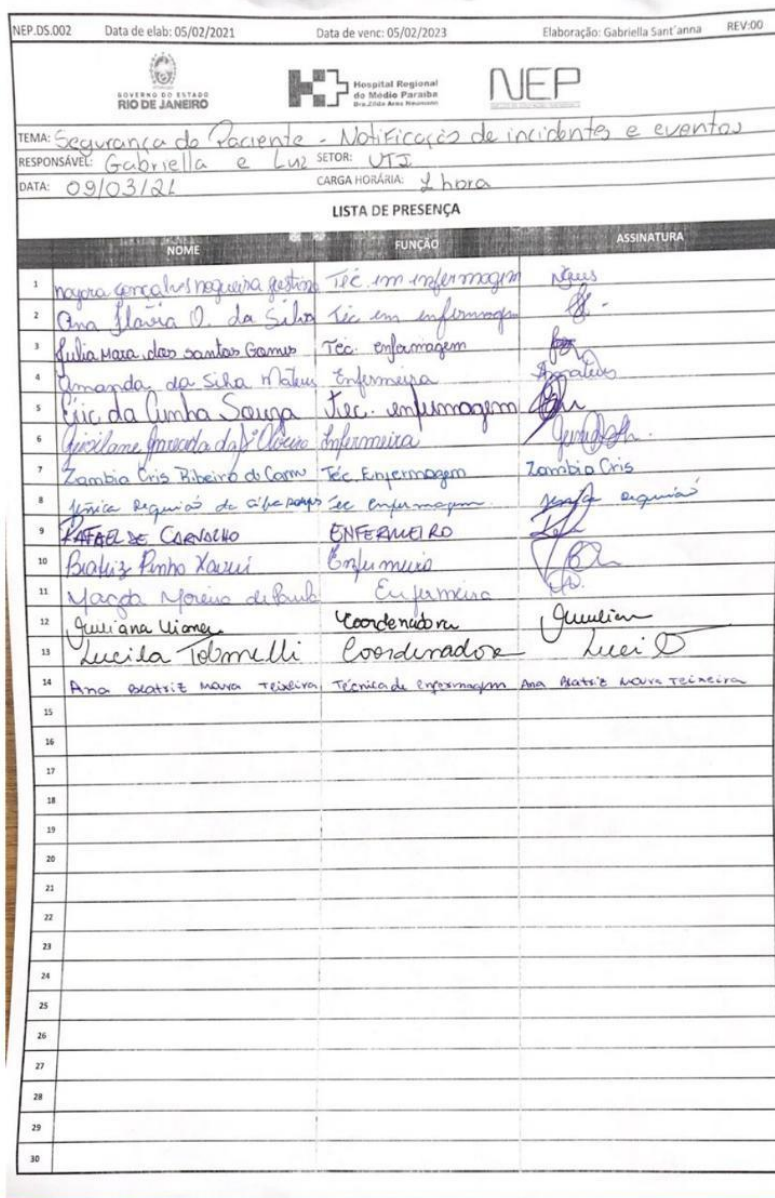 NEP.DS.002 Data de elab: 05/02/2021 Data de venc: 05/02/2023 Elaboração: Gabriella Sant´anna REV:00
GOVERNO DO ESTADO
RIO DE JANEIRO
Hospital Regional
do Médio Paraíba
Dra.Zilda Arns Neumann
NEP
TEMA: Segurança do Paciente - Notificação de incidentes e eventos
RESPONSÁVEL: Gabriella e Luz SETOR: UTI
DATA: 09/03/21 CARGA HORÁRIA: 1 hora
LISTA DE PRESENÇA
NOME FUNÇÃO ASSINATURA
1 nayara gonçalves nogueira Téc. em enfermagem
2 Ana Flavia O. da Silva Téc em enfermagem
3 Julia Mara dos santos Gomes Tec. enfermagem
4 Amanda da Silva Mateus Enfermeira
5 Eric da Cunha Souza Tec. enfermagem
6 Enfermeira
7 Zambia Cris Ribeiro do Carmo Téc. Enfermagem Zambia Cris
8 Tec enfermagem.
9 RAFAEL DE CARVALHO ENFERMEIRO
10 Beatriz Pinho Enfermeira
11 Magda Moreira de Paula Enfermeira
12 Juliana Viana Coordenadora
13 Lucila Coordenadora
14 Ana Beatriz Moura Teixeira Técnica de enfermagem Ana Beatriz Moura Teixeira
15
16
17
18
19
20
21
22
23
24
25
26
27
28
29
30